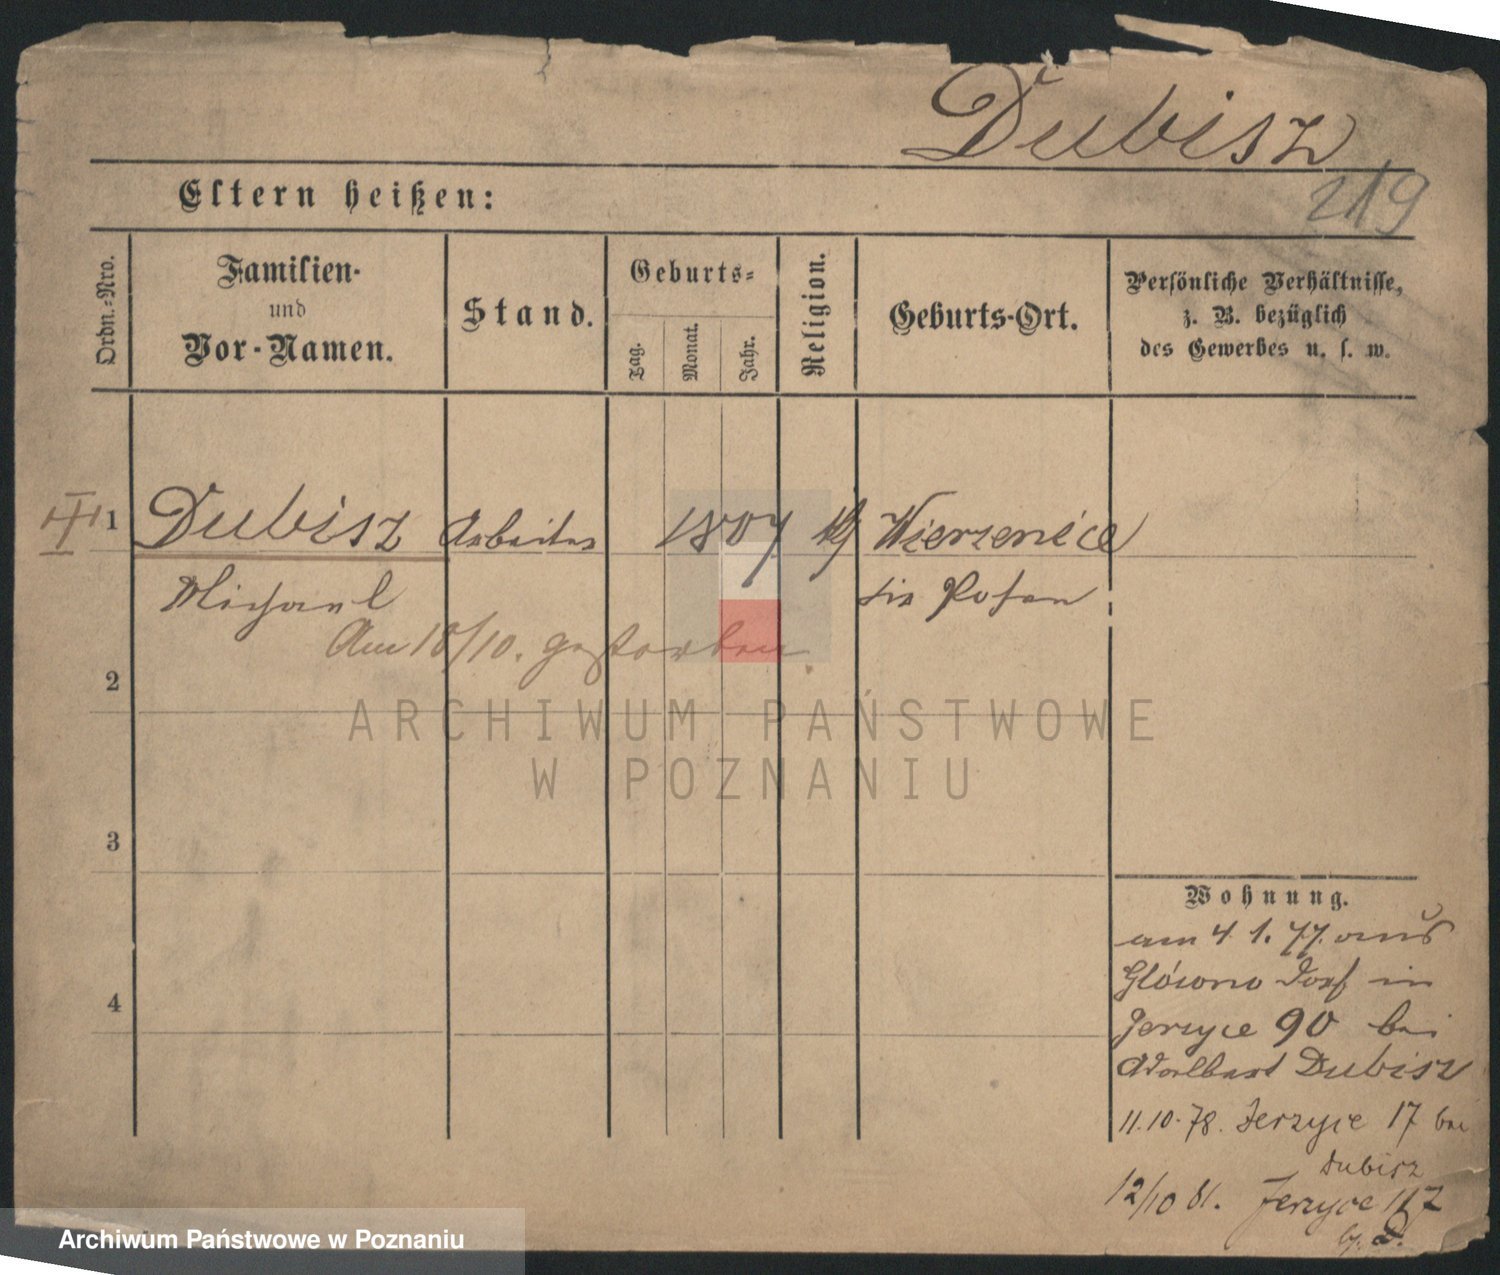 Dubisz
219
Eltern heißen:
Ordn.-Nro.
Familien-
und
Vor-Namen.
Stand.
Geburts-
Tag.
Monat.
Jahr.
Religion.
Geburts-Ort.
Persönliche Verhältnisse,
z. B. bezüglich
des Gewerbes u. s. w.
1 Dubisz Arbeiter 1807 Wierzenice
Michael bei Posen
Am 18/10. gestorben
2
ARCHIWUM PAŃSTWOWE
W POZNANIU
3
4
Wohnung.
am 4. 1. 77. aus
Glówno Dorf in
Jerzyce 90 bei
Adalbert Dubisz
11.10.78. Jerzyce 17 bei
Dubisz
12/10 81. Jerzyce 117
b. D.
Archiwum Państwowe w Poznaniu